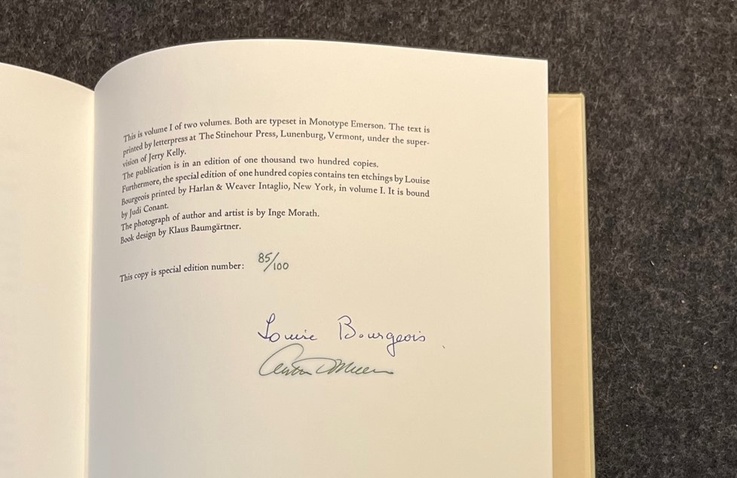 This is volume I of two volumes. Both are typeset in Monotype Emerson. The text is
printed by letterpress at The Stinehour Press, Lunenburg, Vermont, under the super-
vision of Jerry Kelly.
The publication is in an edition of one thousand two hundred copies.
Furthermore, the special edition of one hundred copies contains ten etchings by Louise
Bourgeois printed by Harlan & Weaver Intaglio, New York, in volume I. It is bound
by Judi Conant.
The photograph of author and artist is by Inge Morath.
Book design by Klaus Baumgärtner.
This copy is special edition number: 85/100
Louise Bourgeois